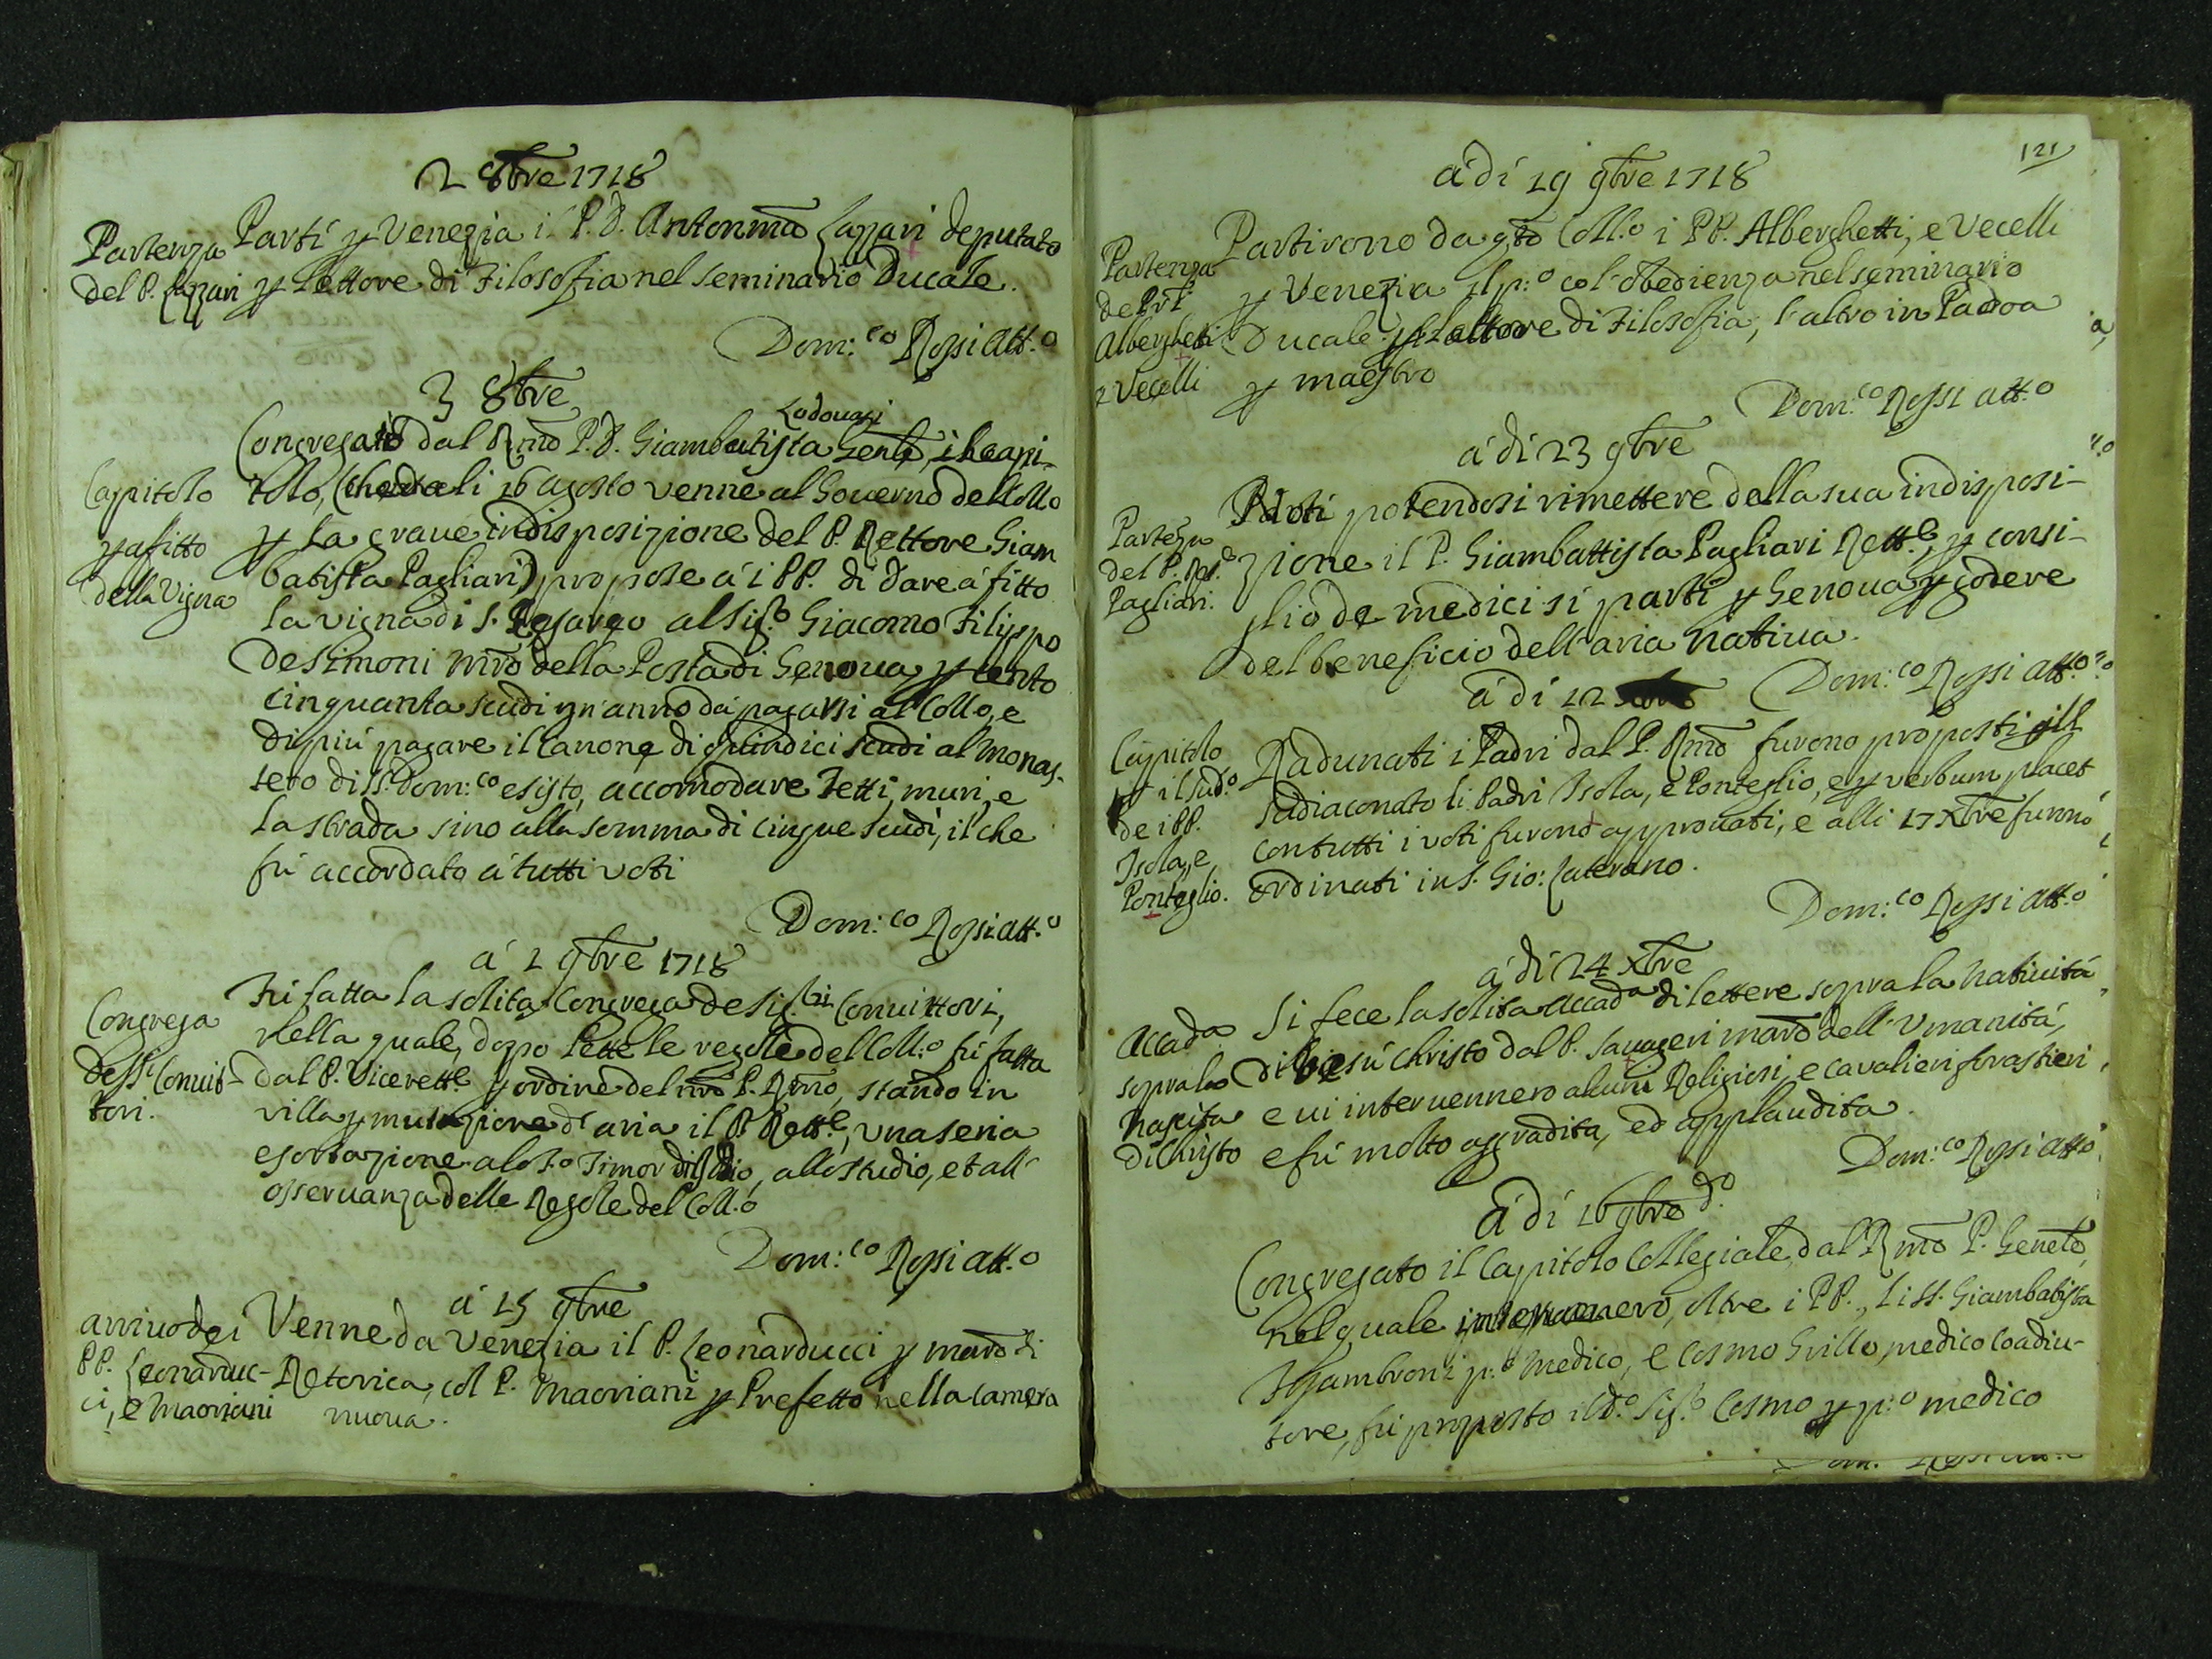 2 8bre 1718
Partenza
del P. Lazzari
Partì p Venezia il P. D. Antonmã Lazzari deputato
p Lettore di Filosofia nel seminario Ducale.
Dom:co Rossi att.o
3 8bre
Capitolo
p afitto
della Vigna
Lodovasi
Congregato dal Rmo P. D. Giambatista Genle, il capi-
tolo, (che da li 16 agosto venne al Governo del Collo
p la grave indisposizione del P. Rettore Giam
batista Pagliari) propose á i PP. di dare á fitto
la vigna di S. Cesareo al Sig.o Giacomo Filippo
De Simoni mrõ della Posta di Genova p cento
cinquanta scudi p anno da pagarsi al Collo, e
di più pagare il canone di quindici scudi al monas-
tero di SS. Dom:co e Sisto, accomodare Tetti, muri, e
la strada sino alla somma di cinque scudi, il che
fù accordato á tutti voti
Dom:co Rossi att.o
á 2 9bre 1718
Congrega
de SS.i Convit-
tori.
Fù fatta la solita Congrega de Sig.ri Convittori,
nella quale, dopo lette le regole del Coll.o fù fatta
dal P. Vicerett.e p ordine del nrõ P. Rmo, stando in
villa p mutazione d'aria il P. Rett.e, una seria
esortazione al Sto Timor di Dio, allo studio, et all'
osservanza delle Regole del Coll.o
Dom:co Rossi att.o
á 15 9bre
arrivo dei
PP. Leonarduc-
ci, e Maoriani
Venne da Venezia il P. Leonarducci p mãro di
Retorica, col P. Maoriani p Prefetto nella Camera
nuova.
121
á dì 19 9bre 1718
Partenza
de PP.
Alberghetti
e Vecelli
Partirono da qto Coll.o i PP. Alberghetti, e Vecelli
p Venezia il p:o col obedienza nel seminario
Ducale p Lettore di Filosofia, l'altro in Padoa
p maestro
Dom:co Rossi att.o
á dì 23 9bre
Partenza
del P. Ret.e
Pagliari.
Non potendosi rimettere della sua indisposi-
zione il P. Giambattista Pagliari Rett.e, p consi-
glio de medici si partì p Genova p godere
del beneficio dell'aria nativa.
Dom:co Rossi att.o
á dì 12
Capitolo
p il sud.o
de i PP.
Isola, e
Ponteglio.
Radunati i Padri dal P. Rmo furono proposti p il
sudiaconato li Padri Isola, e Ponteglio, e p verbum placet
con tutti i voti furono approvati, e alli 17 Xbre furono
ordinati in S. Gio: Laterano.
Dom:co Rossi att.o
á dì 24 Xbre
Accad.a
sopra la
nascita
di Christo
Si fece la solita accad.a di lettere sopra la natività
di Giesù Christo dal P. Savageri mãro dell'Umanità,
e vi intervennero alcuni Religiosi, e cavalieri forastieri
e fù molto aggradita, ed applaudita.
Dom:co Rossi att.o
á dì 16 9bre d.o
Congregato il Capitolo Collegiale dal Rmo P. Genele,
nel quale intervennero, oltre i PP., li SS. Giambatista
Sgambroni p:o medico, e Cosmo Grillo, medico Coadiu-
tore, fù proposto il d.o Sig.o Cosmo p p:o medico